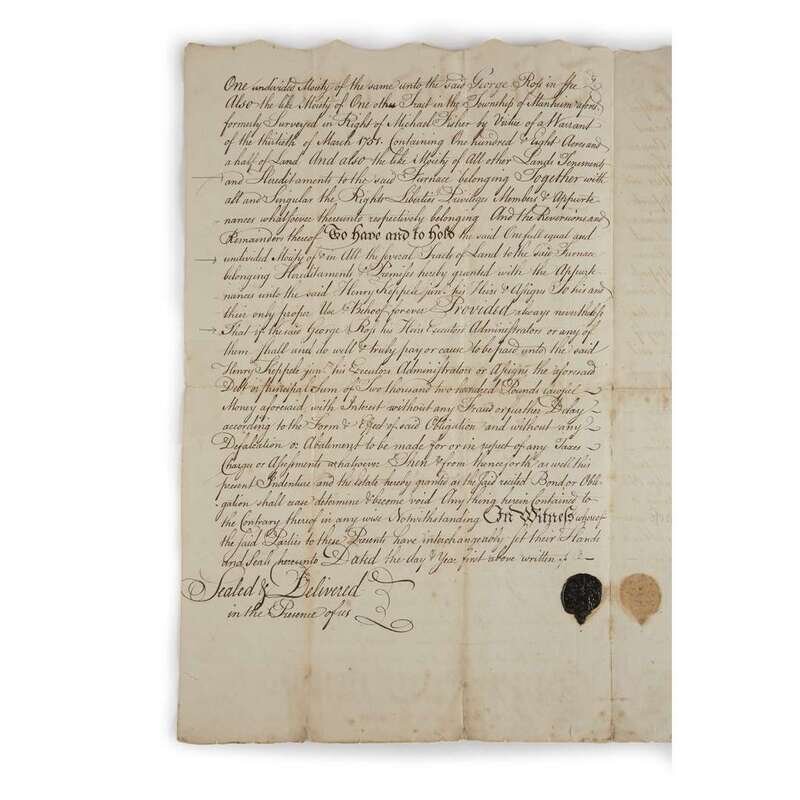 One undivided Moiety of the same unto the said George Ross in ffee
Also the like Moiety of One other Tract in the Township of Manheim afsd.
formerly Surveyed in Right of Michael Fisher by Virtue of a Warrant
of the thirtieth of March 1751. Containing One hundred & Eight Acres and
a half of Land And also the like Moiety of All other Lands Tenements
and Hereditaments to the said Furnace belonging Together with
all and Singular the Rights Liberties Priviledges Members & Appurte
nances whatsoever thereunto respectively belonging And the Reversions and
Remainders thereof To have and to hold the said One full equal and
undivided Moiety of & in All the several Tracts of Land to the said Furnace
belonging Hereditaments & Premisses hereby granted with the Appurte
nances unto the said Henry Keppele junr. his Heirs & Assigns To his and
their only proper Use & Behoof forever Provided always nevertheless
That if the said George Ross his Heirs Executors Administrators or any of
them shall and do well & truly pay or cause to be paid unto the said
Henry Keppele junr. his Executors Administrators or Assigns the aforesaid
Debt or Principal Sum of Two thousand two hundred Pounds lawful
Money aforesaid with Interest without any Fraud or further Delay
according to the Form & Effect of said Obligation and without any
Defalcation or Abatement to be made for or in respect of any Taxes
Charges or Assessments whatsoever Then & from thenceforth as well this
present Indenture and the Estate hereby granted as the said recited Bond or Obli-
gation shall cease determine & become void Any thing herein Contained to
the Contrary thereof in any wise Notwithstanding In Witness whereof
the said Parties to these Presents have interchangeably set their Hands
and Seals hereunto Dated the day & Year first above written
Sealed & Delivered
in the Presence of us